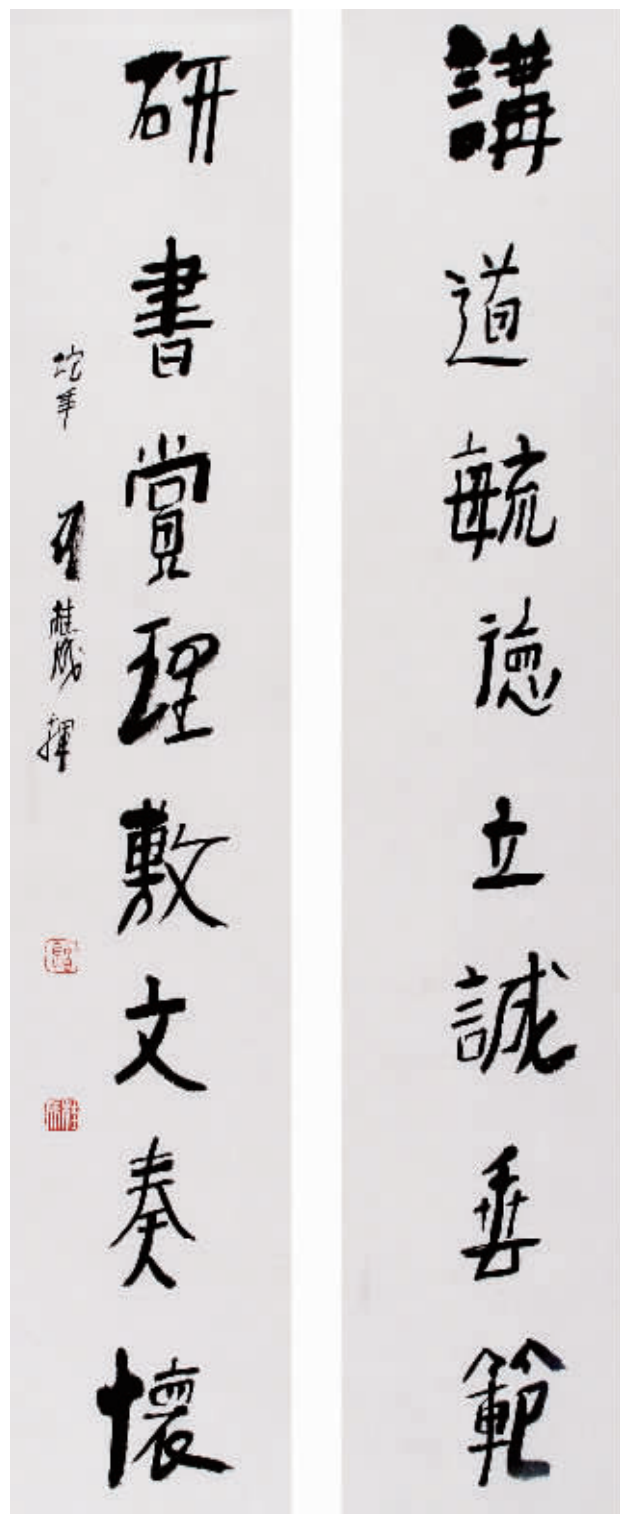 講道毓德立誠垂範
研書賞理敷文奏懷